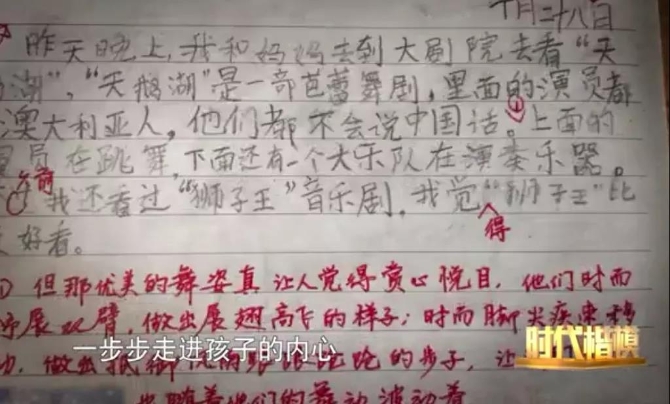 月二十八日
昨天晚上,我和妈妈去到大剧院去看“天
湖”,“天鹅湖”是一部芭蕾舞剧,里面的演员都
澳大利亚人,他们都不会说中国话。上面的
员在跳舞,下面还有一个大乐队在演奏乐器。
以前
我还看过“狮子王”音乐剧,我觉“狮子王”比
得
好看。
① 但那优美的舞姿真让人觉得赏心悦目,他们时而
展双臂,做出展翅高飞的样子;时而脚尖疾速移
时代楷模
一步步走进孩子的内心
做出 的步子,让
随着他们的舞动波动着